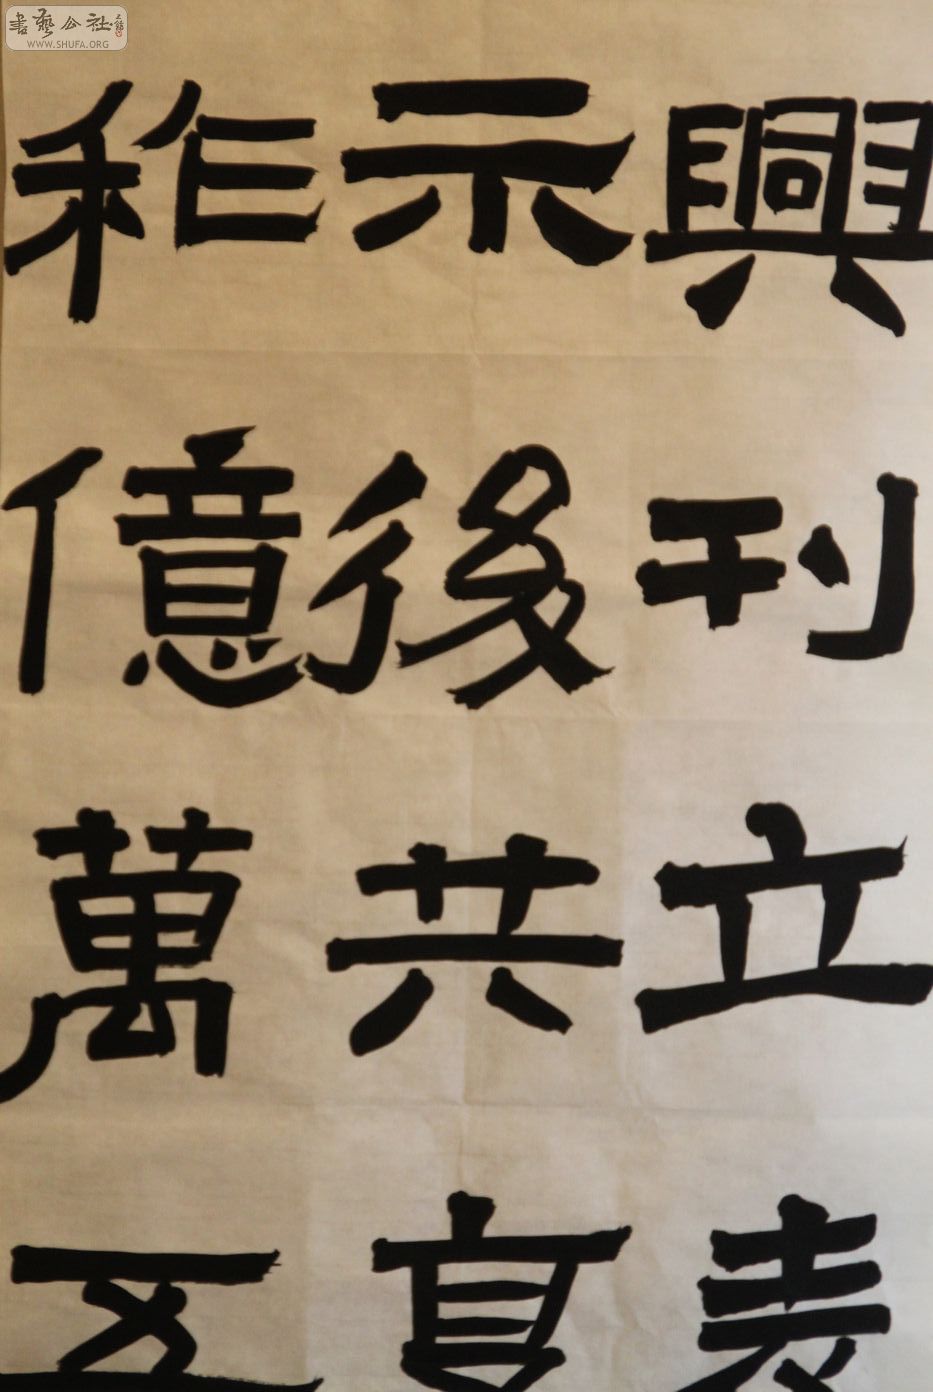 書藝公社
WWW.SHUFA.ORG
興刊立表
示後共享
祚億萬五